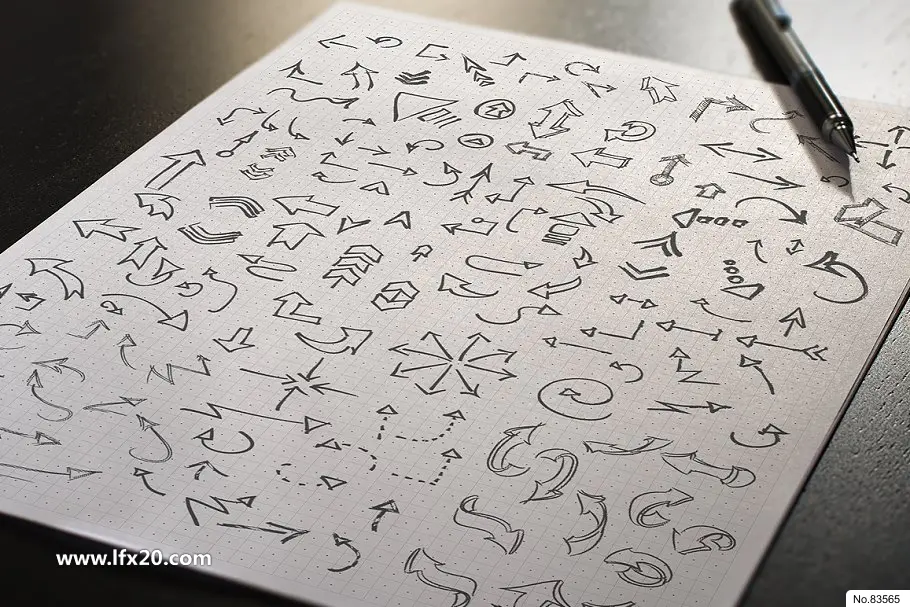 www.lfx20.com
No.83565